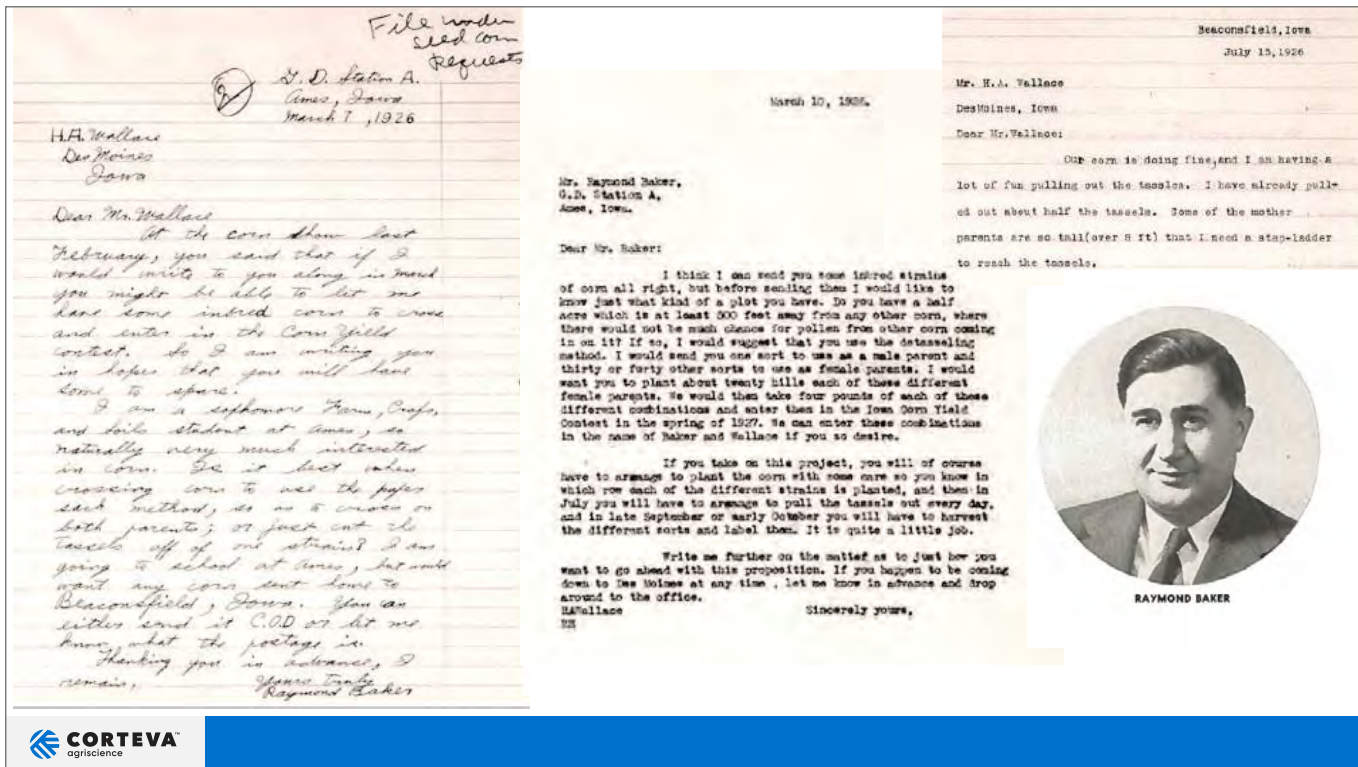 File under
seed corn
requests
2
G. D. Station A.
Ames, Iowa
March 7, 1926
H.A. Wallace
Des Moines
Iowa
Dear Mr. Wallace
At the corn show last
February, you said that if I
would write to you along in March
you might be able to let me
have some inbred corn to cross
and enter in the Corn Yield
contest. So I am writing you
in hopes that you will have
some to spare.
I am a sophomore Farm, Crops,
and Soils student at Ames, so
naturally very much interested
in corn. Is it best when
crossing corn to use the paper
sack method, so as to cross on
both parents; or just cut the
tassels off of one strain? I am
going to school at Ames, but would
want any corn sent home to
Beaconsfield, Iowa. You can
either send it C.O.D or let me
know what the postage is.
Thanking you in advance, I
remain,
Yours Truly
Raymond Baker
March 10, 1926.
Mr. Raymond Baker,
G.D. Station A,
Ames, Iowa.
Dear Mr. Baker:
I think I can send you some inbred strains
of corn all right, but before sending them I would like to
know just what kind of a plot you have. Do you have a half
acre which is at least 500 feet away from any other corn, where
there would not be much chance for pollen from other corn coming
in on it? If so, I would suggest that you use the detasseling
method. I would send you one sort to use as a male parent and
thirty or forty other sorts to use as female parents. I would
want you to plant about twenty hills each of these different
female parents. We would then take four pounds of each of these
different combinations and enter them in the Iowa Corn Yield
Contest in the spring of 1927. We can enter these combinations
in the name of Baker and Wallace if you so desire.
If you take on this project, you will of course
have to arrange to plant the corn with some care so you know in
which row each of the different strains is planted, and then in
July you will have to arrange to pull the tassels out every day,
and in late September or early October you will have to harvest
the different sorts and label them. It is quite a little job.
Write me further on the matter as to just how you
want to go ahead with this proposition. If you happen to be coming
down to Des Moines at any time , let me know in advance and drop
around to the office.
HAWallace Sincerely yours,
Beaconsfield, Iowa
July 15,1926
Mr. H.A. Wallace
DesMoines, Iowa
Dear Mr.Wallace:
Our corn is doing fine,and I am having a
lot of fun pulling out the tassles. I have already pull-
ed out about half the tassels. Some of the mother
parents are so tall(over 8 ft) that I need a step-ladder
to reach the tassels.
RAYMOND BAKER
CORTEVA™
agriscience